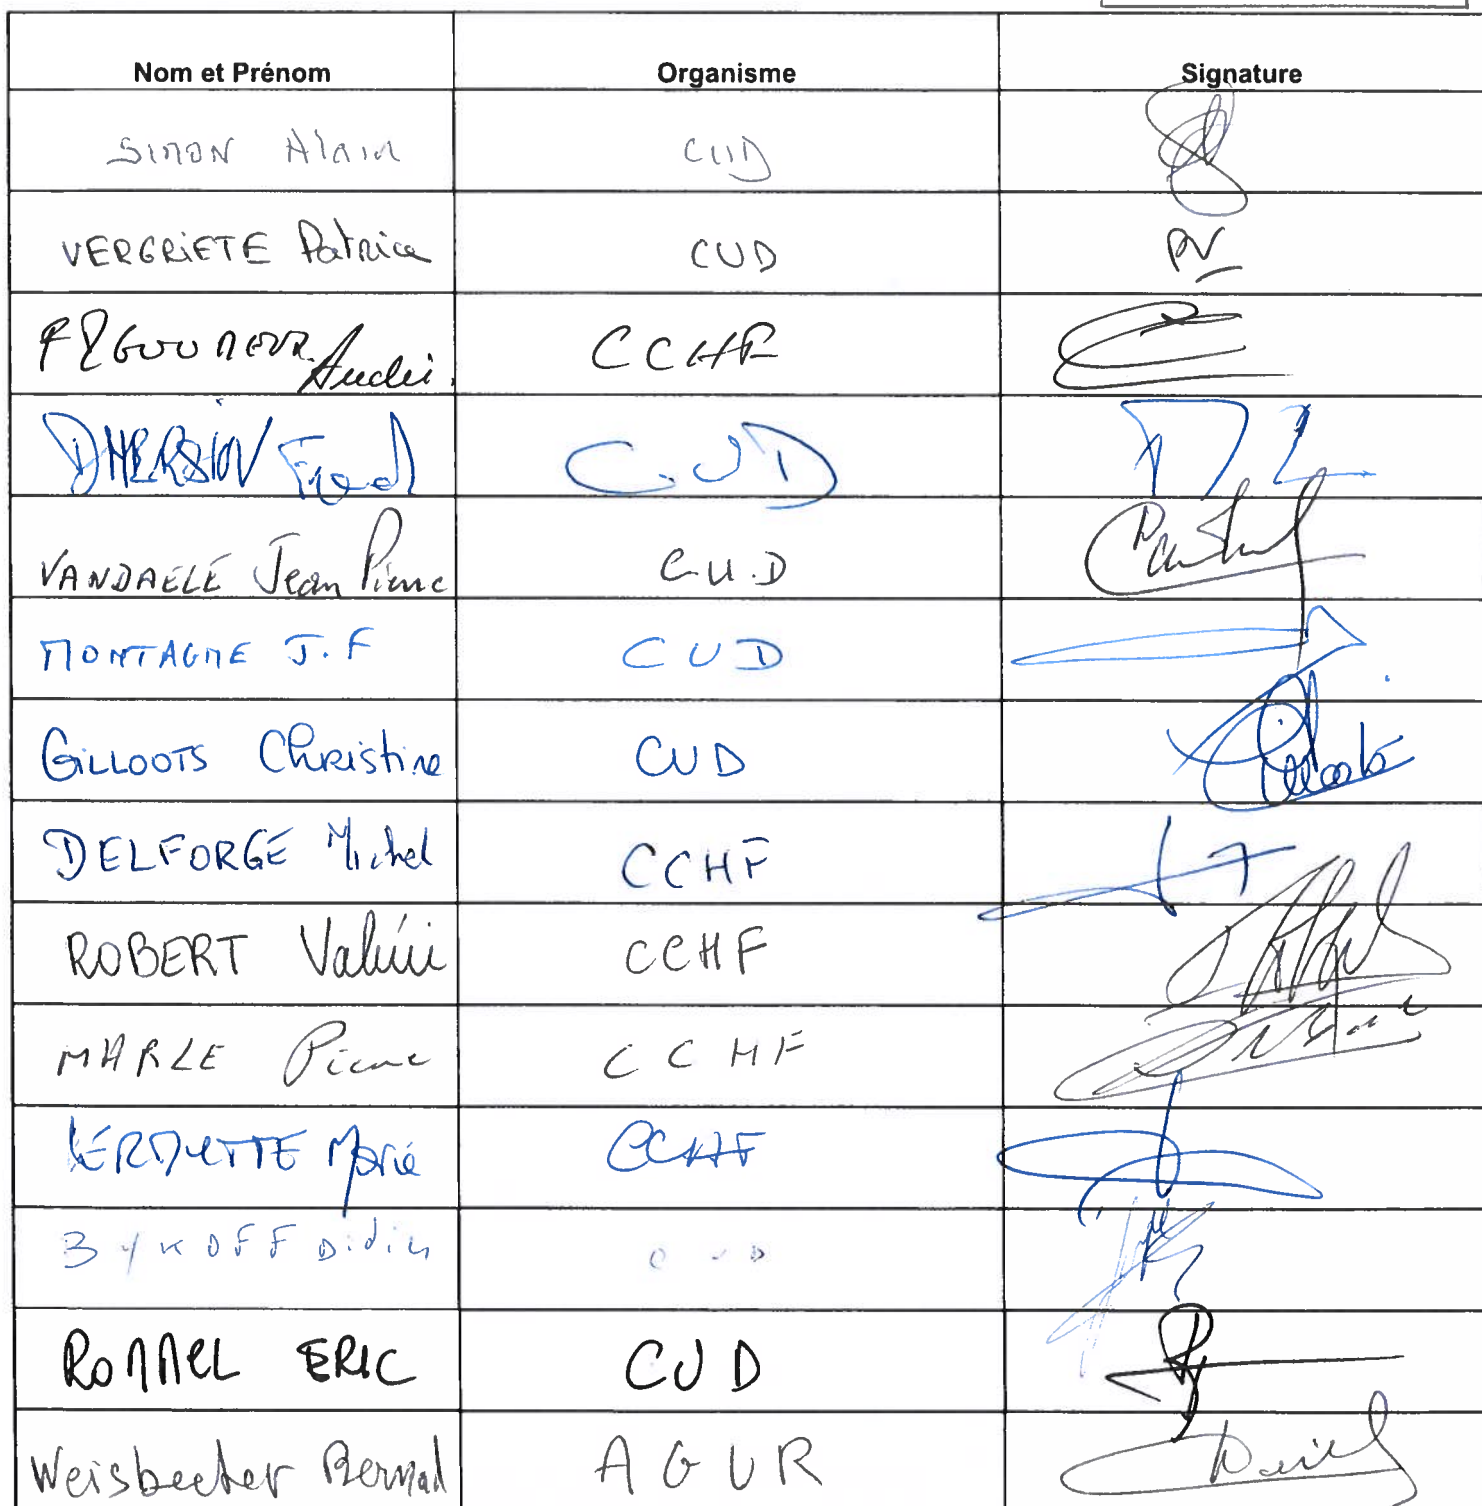 Nom et Prénom Organisme Signature
SIMON Alain CUD
VERGRiETE Patrice CUD PV
André. CCHF
Fred C.UD
VANDAELE Jean Pierre C.U.D
MONTAGNE J.F CUD
GiLLOOTS Christine CUD
DELFORGE Michel CCHF
ROBERT Valérie CCHF
MARLE Pierre CCHF
Marie CCHF
BYKOFF Didier
ROMMEL ERIC CUD
Weisbecker Bernard AGUR